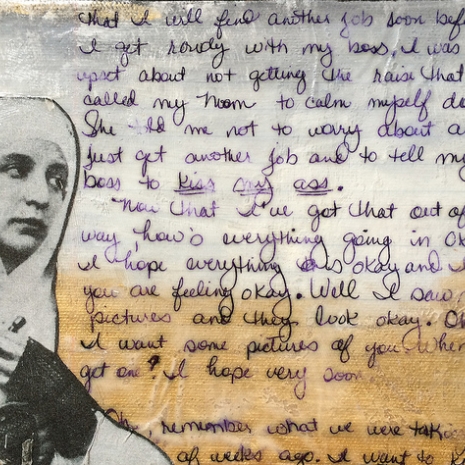 that I will find another job soon bef
I get rowdy with my boss. I was
upset about not getting the raise that
called my mom to calm myself do
She told me not to worry about a
just get another job and to tell my
boss to kiss my ass.
Now that I've got that out of
way, how's everything going in Ok
I hope everything is okay and I
you are feeling okay. Well I saw
pictures and they look okay. O
I want some pictures of you. When
got one? I hope very soon
remember what we were talki
of weeks ago. I want to k